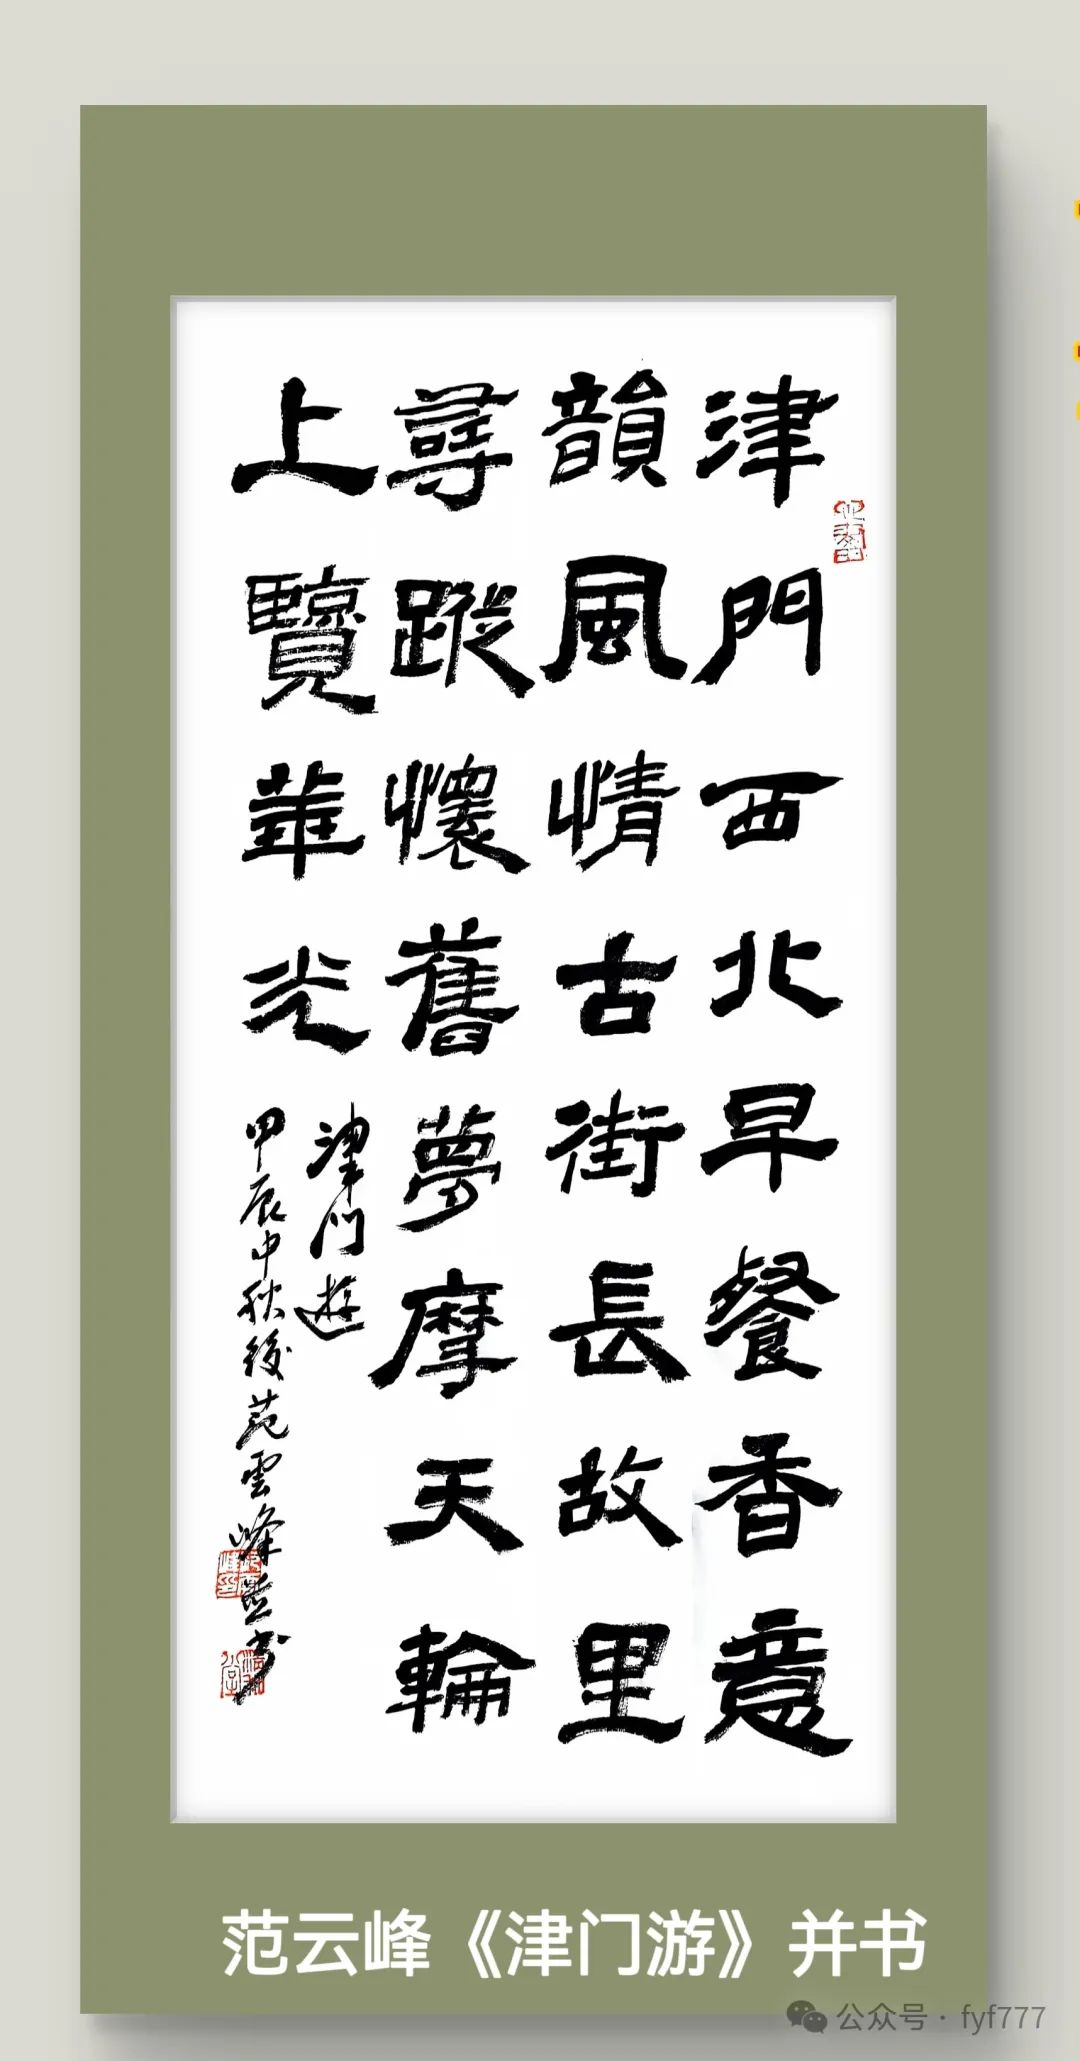 津門西北早餐香意
韻風情古街長故里
尋蹤懷舊夢摩天輪
上覽華光
津门遊
甲辰中秋後范雲峰並书
范云峰《津门游》并书
公众号·fyf777